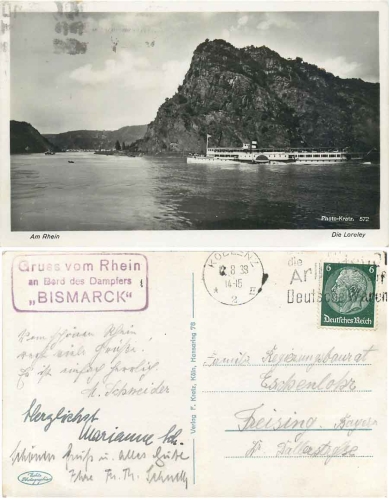 Am Rhein
Photo-Kratz. 572
Die Loreley
Gruss vom Rhein
an Bord des Dampfers
„BISMARCK“
KOBLENZ
8.38
14-15
2
die
Deutsche Waren
6 6
Deutsches Reich
Verlag F. Kratz, Köln, Hansaring 78
Vom schönen Rhein
recht viele Grüße.
Es ist einfach herrlich
Schneider
Herzlichst
Marianne Sch.
schönen Gruß u. alles Gute
Ihre Fr. Th.
Familie Regierungsbaurat
Eschenlohr
Freising Bayern